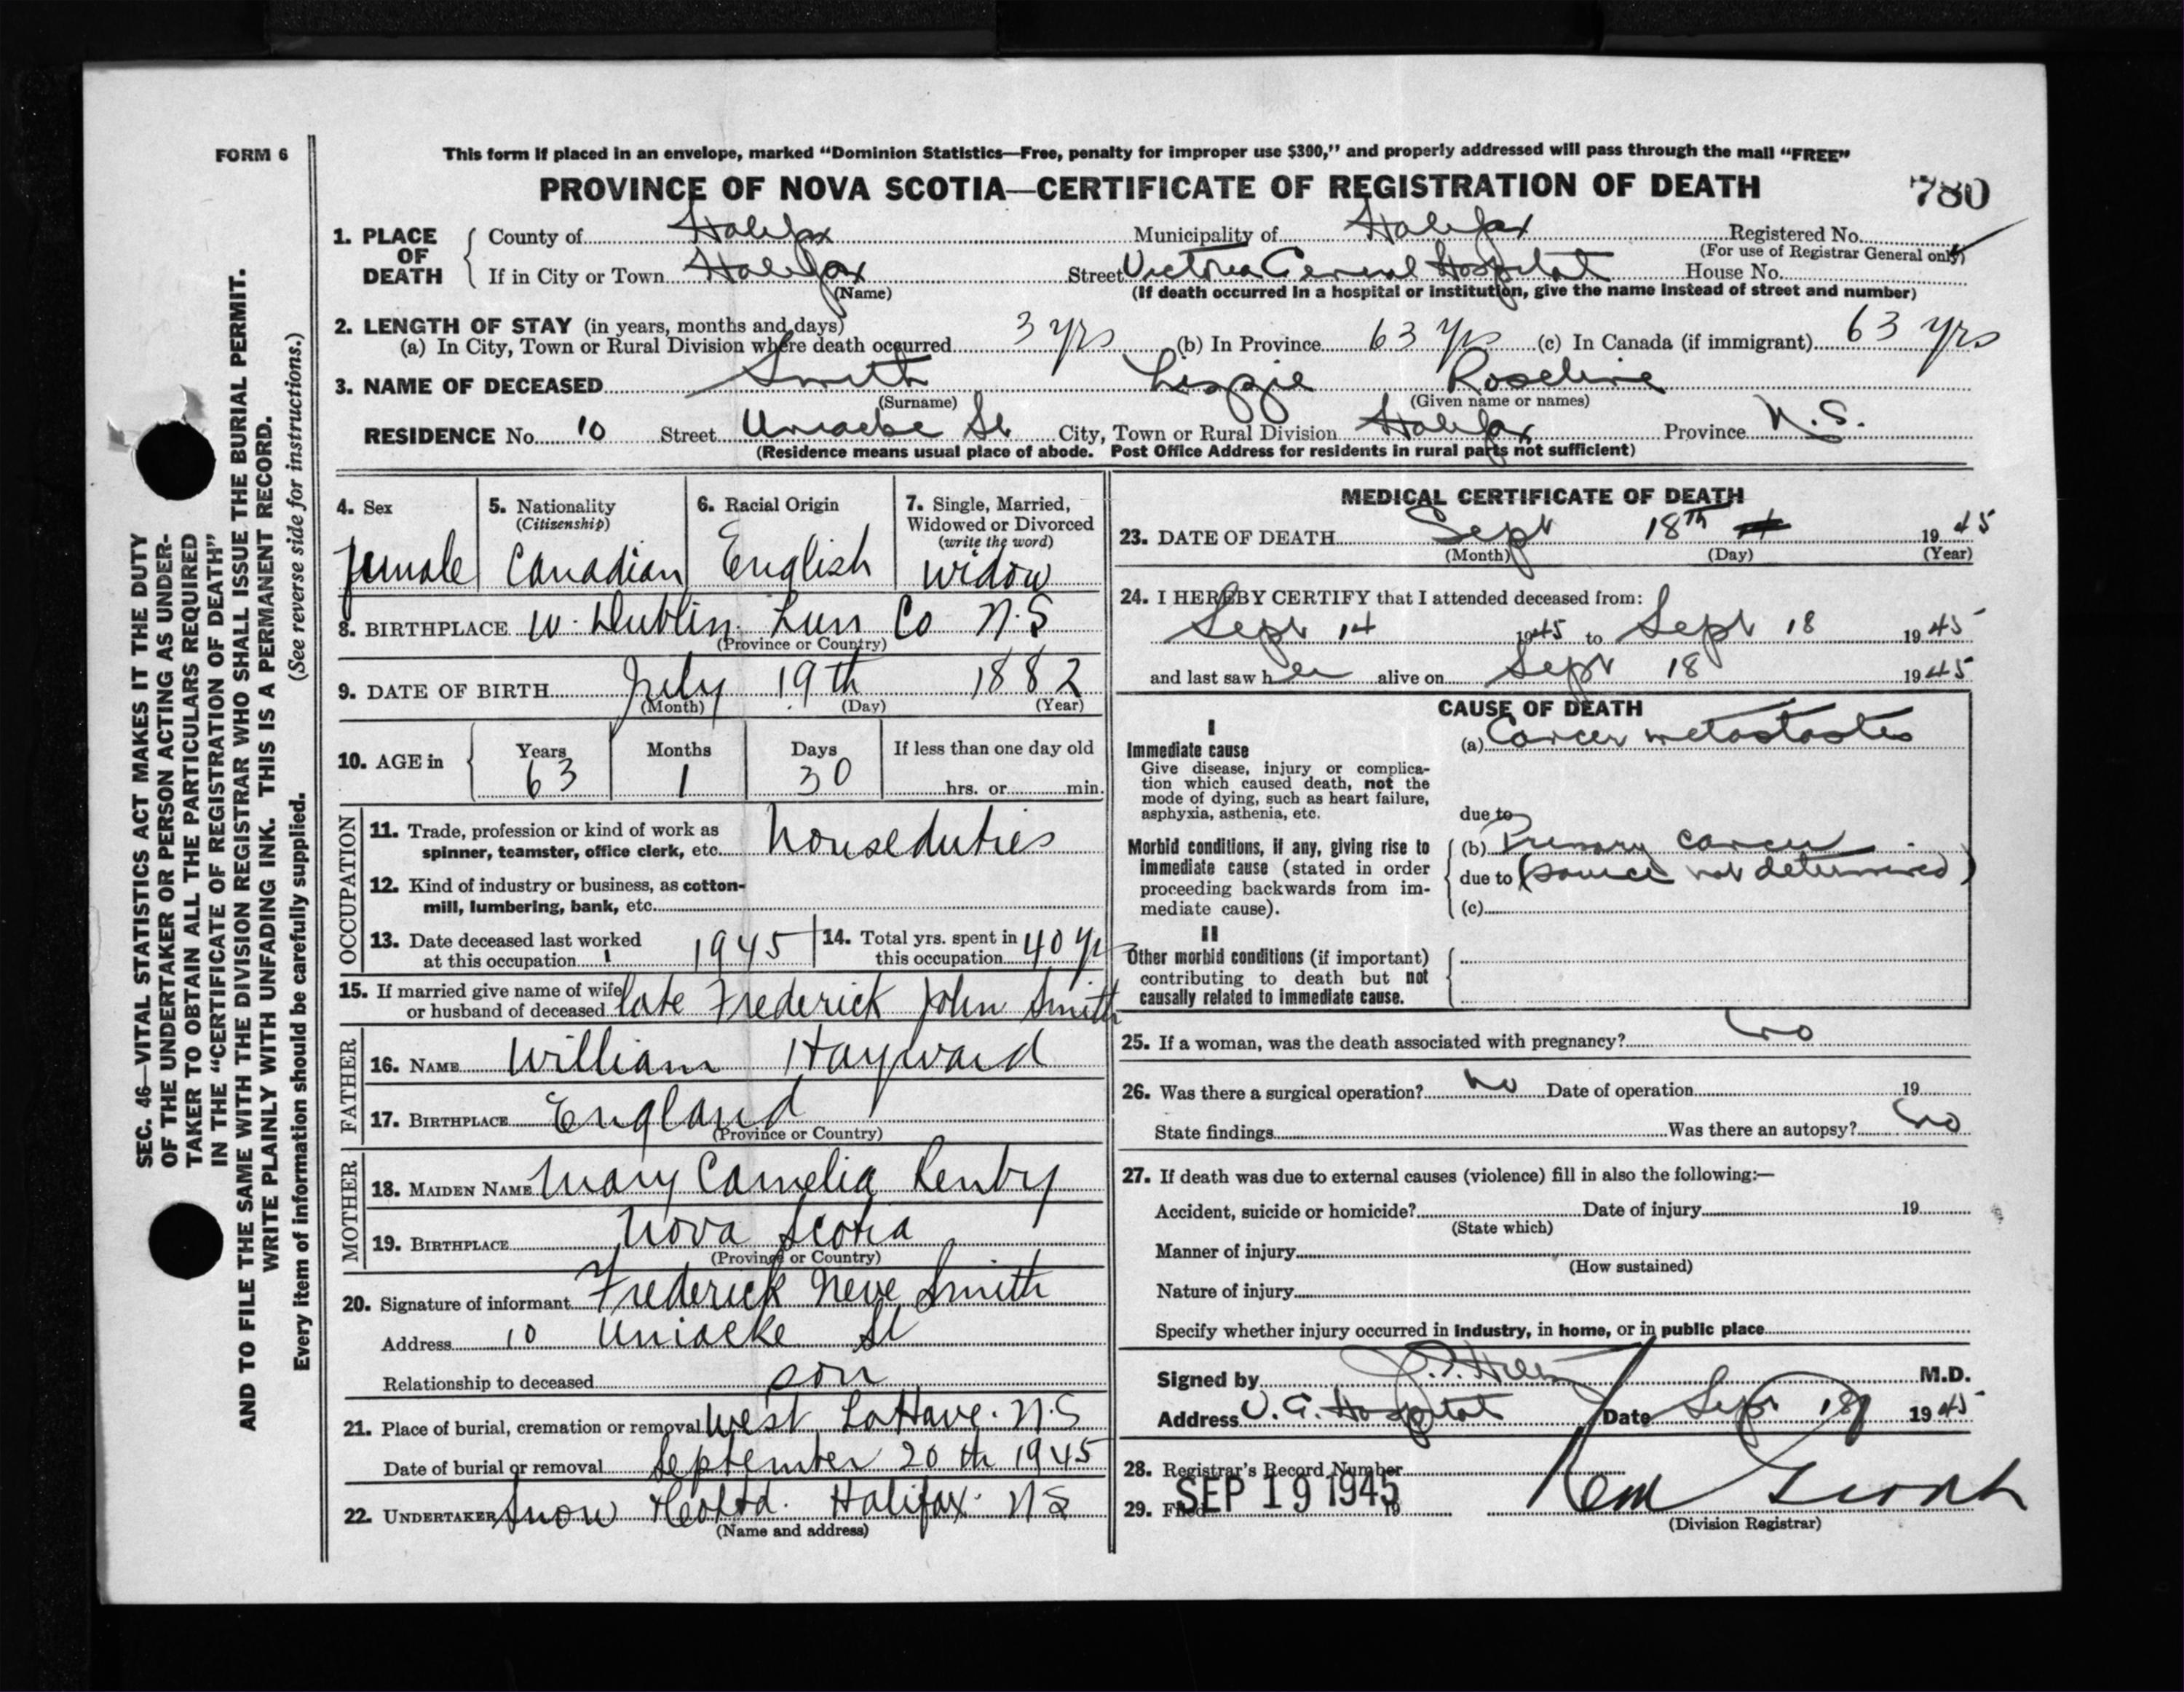 FORM 6
This form if placed in an envelope, marked “Dominion Statistics—Free, penalty for improper use $300,” and properly addressed will pass through the mail “FREE”
PROVINCE OF NOVA SCOTIA—CERTIFICATE OF REGISTRATION OF DEATH
780
1. PLACE OF DEATH County of Halifax Municipality of Halifax Registered No.
(For use of Registrar General only)
If in City or Town Halifax Street Victoria General Hospital House No.
(Name) (If death occurred in a hospital or institution, give the name instead of street and number)
2. LENGTH OF STAY (in years, months and days)
(a) In City, Town or Rural Division where death occurred 3 yrs (b) In Province 63 yrs (c) In Canada (if immigrant) 63 yrs
3. NAME OF DECEASED Smith Lizzie Roseline
(Surname) (Given name or names)
RESIDENCE No. 10 Street Uniacke St City, Town or Rural Division Halifax Province N.S.
(Residence means usual place of abode. Post Office Address for residents in rural parts not sufficient)
4. Sex 5. Nationality 6. Racial Origin 7. Single, Married,
(Citizenship) Widowed or Divorced
(write the word)
female Canadian English widow
8. BIRTHPLACE W. Dublin Lun Co N.S
(Province or Country)
9. DATE OF BIRTH July 19th 1882
(Month) (Day) (Year)
10. AGE in Years Months Days If less than one day old
63 1 30 hrs. or min.
OCCUPATION
11. Trade, profession or kind of work as
spinner, teamster, office clerk, etc. houseduties
12. Kind of industry or business, as cotton-
mill, lumbering, bank, etc.
13. Date deceased last worked
at this occupation 1945
14. Total yrs. spent in
this occupation 40 yr
15. If married give name of wife
or husband of deceased late Frederick John Smith
FATHER
16. NAME William Hayward
17. BIRTHPLACE England
(Province or Country)
MOTHER
18. MAIDEN NAME Mary Camelia
19. BIRTHPLACE Nova Scotia
(Province or Country)
20. Signature of informant Frederick Neve Smith
Address 10 Uniacke St
Relationship to deceased son
21. Place of burial, cremation or removal West LaHave. N.S
Date of burial or removal September 20th 1945
22. UNDERTAKER Snow & Co Ltd. Halifax. N S
(Name and address)
MEDICAL CERTIFICATE OF DEATH
23. DATE OF DEATH Sept 18th 1945
(Month) (Day) (Year)
24. I HEREBY CERTIFY that I attended deceased from:
Sept 14 1945 to Sept 18 1945
and last saw her alive on Sept 18 1945
CAUSE OF DEATH
I
Immediate cause
Give disease, injury or complica-
tion which caused death, not the
mode of dying, such as heart failure,
asphyxia, asthenia, etc.
(a) Cancer metastastes
due to
Morbid conditions, if any, giving rise to
immediate cause (stated in order
proceeding backwards from im-
mediate cause).
(b) Primary cancer
due to (source not determined)
(c)
II
Other morbid conditions (if important)
contributing to death but not
causally related to immediate cause.
25. If a woman, was the death associated with pregnancy? no
26. Was there a surgical operation? no Date of operation 19
State findings Was there an autopsy? no
27. If death was due to external causes (violence) fill in also the following:—
Accident, suicide or homicide? Date of injury 19
(State which)
Manner of injury
(How sustained)
Nature of injury
Specify whether injury occurred in industry, in home, or in public place
Signed by M.D.
Address V.G. Hospital Date Sept 18 1945
28. Registrar's Record Number
29. Filed SEP 19 1945 19
(Division Registrar)
SEC. 46—VITAL STATISTICS ACT MAKES IT THE DUTY
OF THE UNDERTAKER OR PERSON ACTING AS UNDER-
TAKER TO OBTAIN ALL THE PARTICULARS REQUIRED
IN THE “CERTIFICATE OF REGISTRATION OF DEATH”
AND TO FILE THE SAME WITH THE DIVISION REGISTRAR WHO SHALL ISSUE THE BURIAL PERMIT.
WRITE PLAINLY WITH UNFADING INK. THIS IS A PERMANENT RECORD.
Every item of information should be carefully supplied. (See reverse side for instructions.)